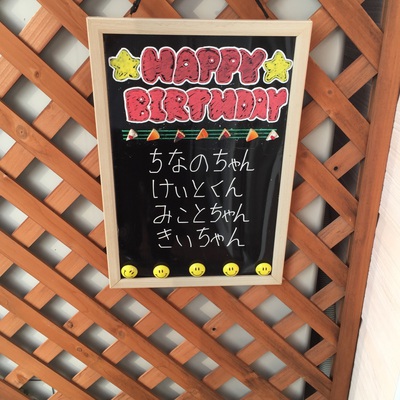 HAPPY
BIRTHDAY
ちなのちゃん
けいとくん
みことちゃん
きいちゃん